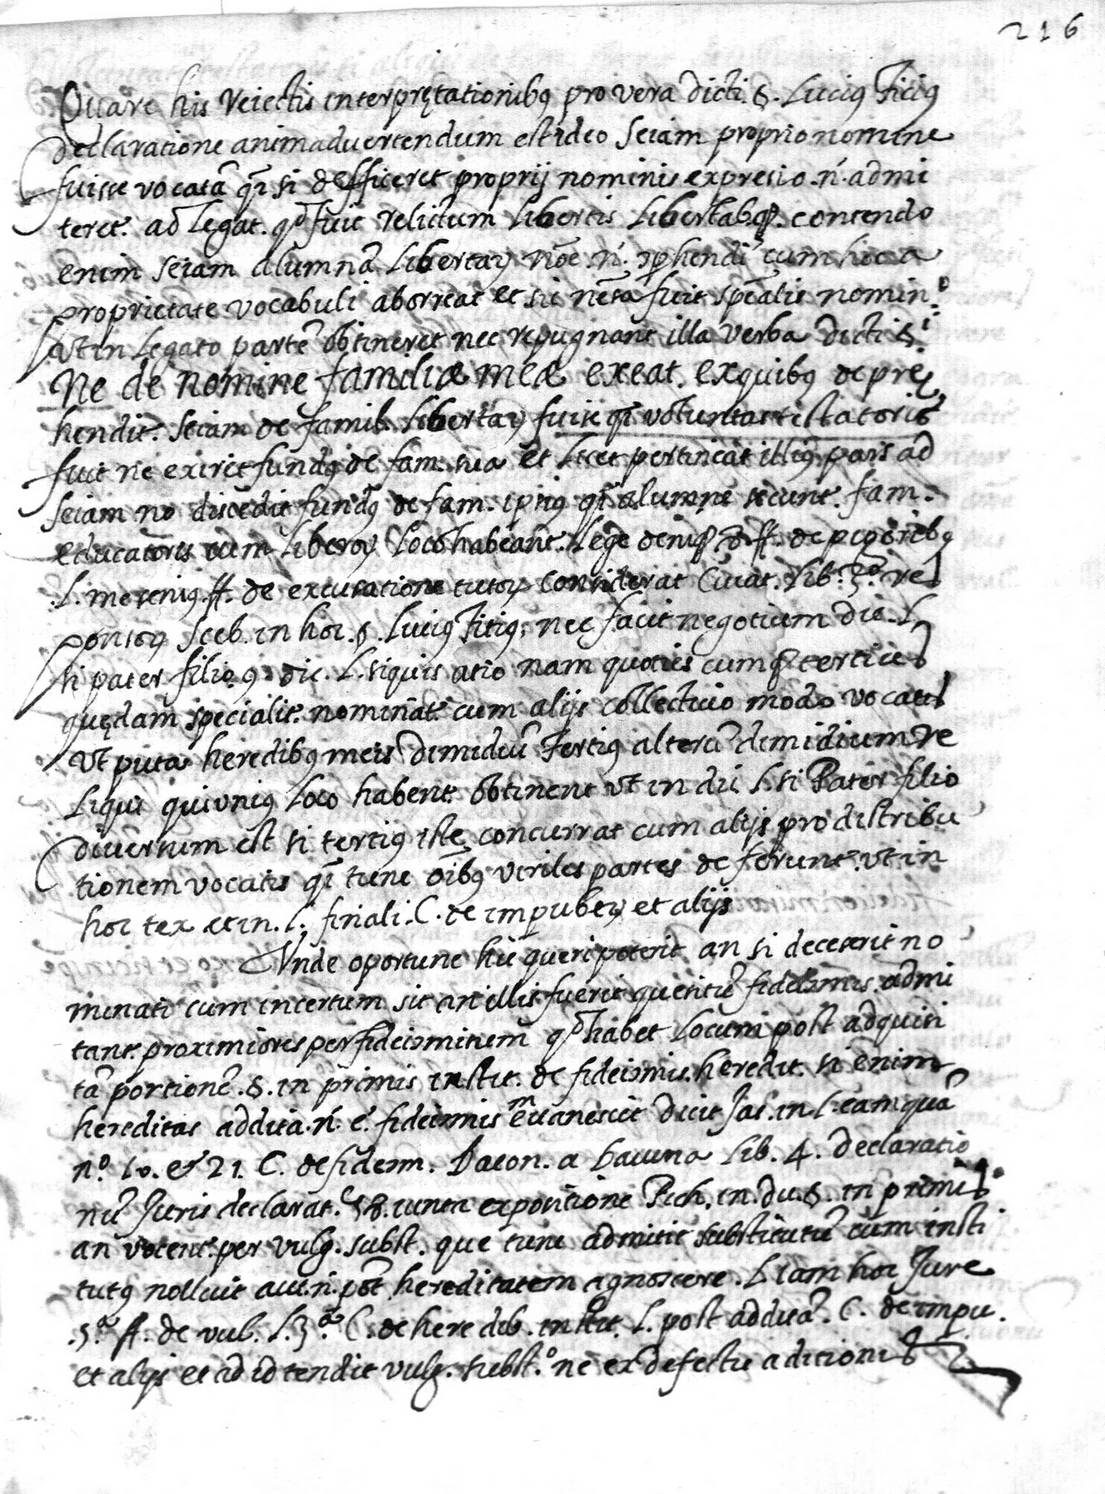 216
Quare his reiectis interpretationibꝰ pro vera dicti §. Luciꝰ Titiꝰ
declaratione animaduertendum est ideo Seiam proprio nomine
fuisse vocatã q̃ si defficeret proprij nominis expresio. ñ. admi
teret.̃ ad Legat. qᵈ fuit relictum Libertis Libertabꝫ. contendo
enim Seiam alumnã Libertaꝝ nõe .ñ. cõprhendi cum hic a
proprietate vocabuli aborreat et sic neſsa fuit spẽalis nomin.º
ut in Legato partẽ obtineret nec repugnant illa verba dicti §.
Ne de nomine familiæ meæ exeat. Ex quibꝰ depre
hendit.̃ Seiam de famil. Libertaꝝ fuise q̃ voluntas testatoris
fuit ne exiret fundꝰ de fam. sua et licet pertineat illiꝰ pars ad
Seiam no discedit fundꝰ de fam. ipsiꝰ q̃ alumne sicunt. fam.
educatoris cum Liberoꝝ Loco habeant. Lege deniqꝫ ff. de pignoribꝰ
L. meseniꝰ. ff. de excusatione tutoꝝ considerat Cuiat. Lib. 3.º res
ponsoꝝ Sceb. in hoc. §. Luciꝰ Titiꝰ, nec facit negotium dic. L.
si pater filioꝰ. dic. L. si quis atio nam quoties cumqꝫ tertius
quędam specialit. nominat.̃ cum alijs collectiuo modo vocatis
Vt puta heredibꝰ meis dimidiũ Tertiꝰ alterũ dimidium re
Liqui qui vniꝰ Loco habent.̃ obtinent vt in dic L. si Pater filio
diuersum est si tertiꝰ iste concurrat cum alijs pro distribu
tionem vocatis q̃ tunc oĩbꝰ viriles partes deferunt.̃ vt in
hoc tex et in. L. finali. C. de impubeꝝ et alijs
Vnde oportune hic queri poterit an si deceserit no
minati cum incertum sit an illis fuerit quesitũ fideicomis. admi
tant.̃ proximiores per fideicomissum qᵈ habet Locum post adquisi
tã portionẽ. §. in primis instit. de fideicomis. heredit. si enim
hereditas addita. ñ. ẽ. fideicomisᵐ euanescit dicit Jas. in L. eam quã
nº. 10. et 21. C. de fideicom. Dacon. a Lacuna Lib. 4. declaratio
nũ Juris declarat. 58. iunta expositione Pich. in. dic. §. in primis
an vocent.̃ per vulg. subst. que tunc admitit substitutũ cum insti
tutꝰ nolluit aut .ñ. põt hereditatem agnoscere. L. iam hoc Jure
.5.ª ff. de vul. L. 3.ª C. de heredib. instit. L. post additã. C. de impu.
et alijs et ad id tendit vulg. subst.º ne ex defectu aditionis